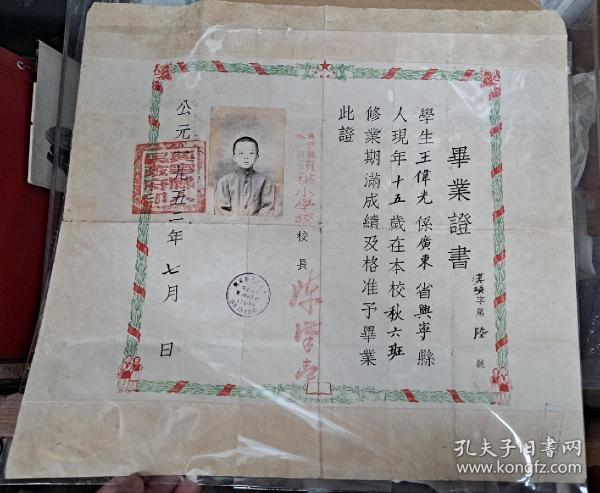 畢業證書
字第 陸 號
學生王偉光係廣東省興寧縣
人現年十五歲在本校秋六班
修業期滿成績及格准予畢業
此證
小學校
校長
公元一九五二年七月 日
孔夫子旧书网
www.kongfz.com